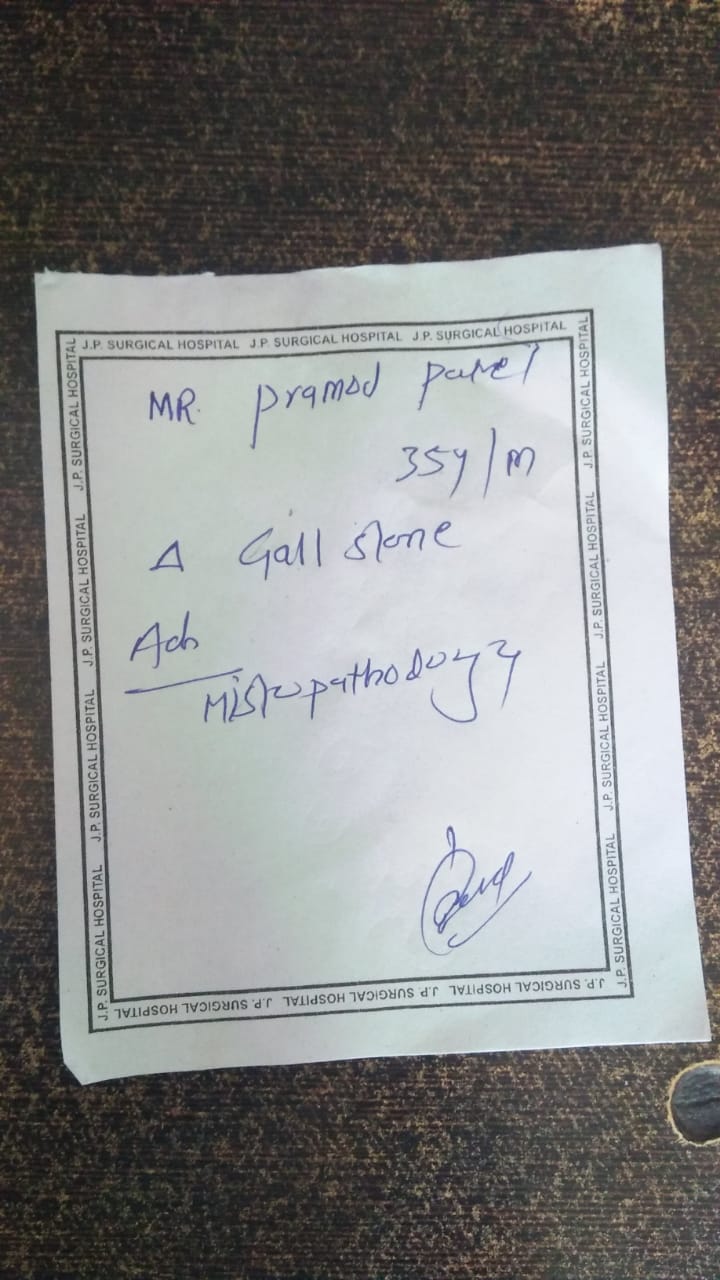 J.P. SURGICAL HOSPITAL J.P. SURGICAL HOSPITAL J.P. SURGICAL HOSPITAL
MR. pramod patel
35y/m
Δ Gall stone
Adv
Histopathology
J.P. SURGICAL HOSPITAL J.P. SURGICAL HOSPITAL J.P. SURGICAL HOSPITAL J.P. SURGICAL HOSPITAL
J.P. SURGICAL HOSPITAL J.P. SURGICAL HOSPITAL J.P. SURGICAL HOSPITAL J.P. SURGICAL HOSPITAL
J.P. SURGICAL HOSPITAL J.P. SURGICAL HOSPITAL J.P. SURGICAL HOSPITAL